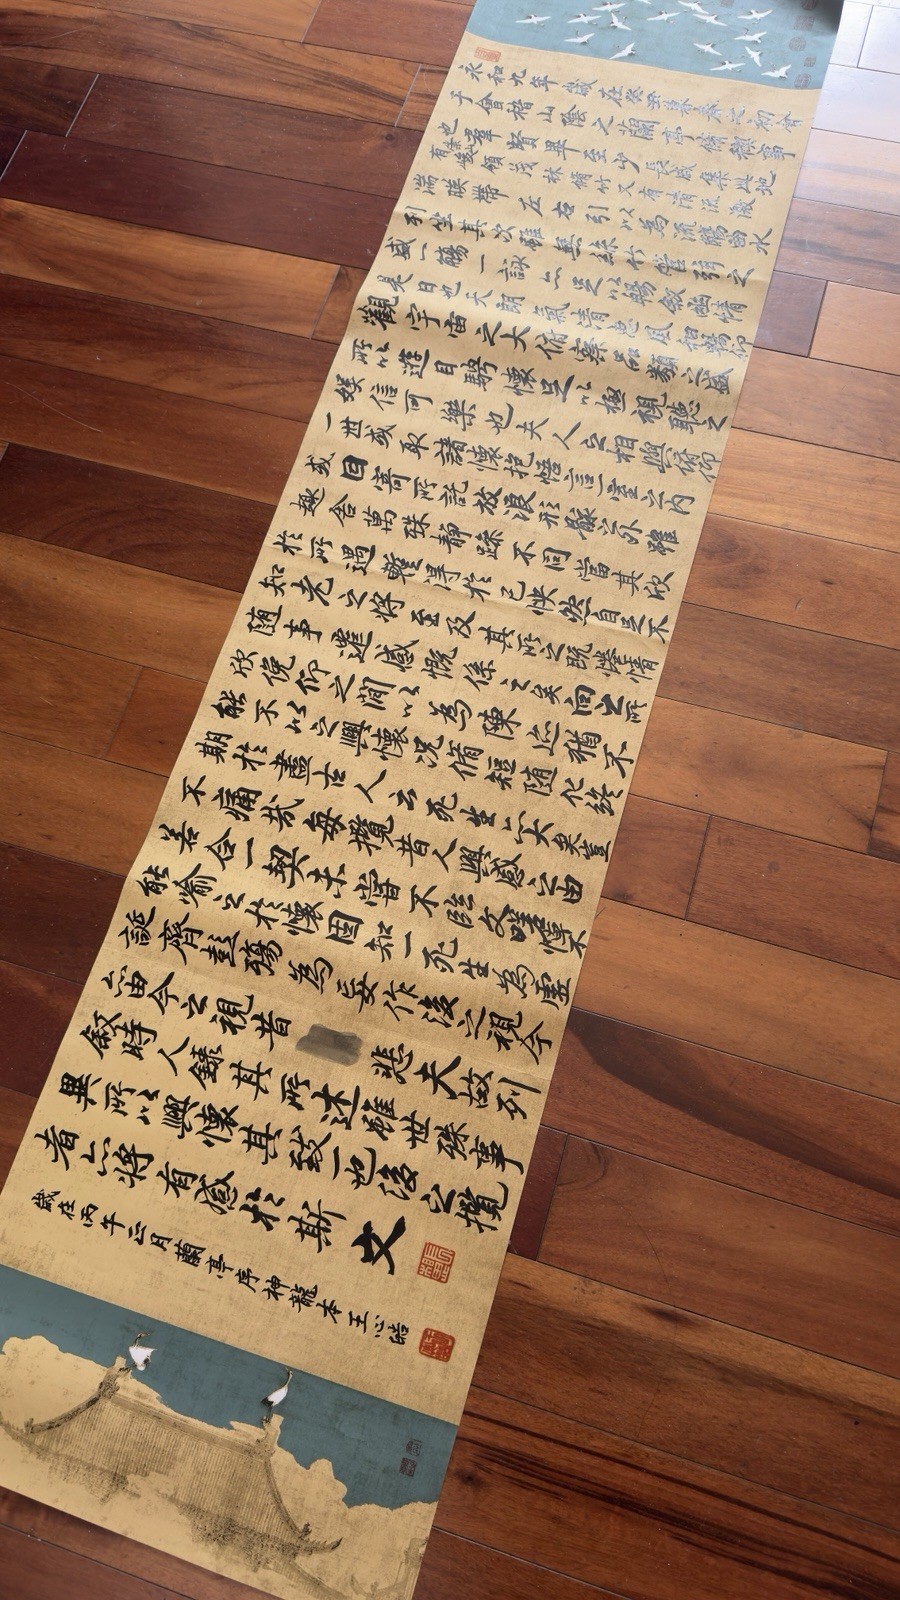 永和九年歲在癸丑暮春之初會
于會稽山陰之蘭亭脩禊事
也羣賢畢至少長咸集此地
有崇山峻領茂林脩竹又有清流激
湍暎帶左右引以為流觴曲水
列坐其次雖無絲竹管弦之
盛一觴一詠亦足以暢敘幽情
是日也天朗氣清惠風和暢仰
觀宇宙之大俯察品類之盛
所以遊目騁懷足以極視聽之
娛信可樂也夫人之相與俯仰
一世或取諸懷抱悟言一室之內
或因寄所託放浪形骸之外雖
趣舍萬殊靜躁不同當其欣
於所遇蹔得於己怏然自足不
知老之將至及其所之既惓情
随事遷感慨係之矣向之所
欣俛仰之間以為陳迹猶不
能不以之興懷況脩短随化終
期於盡古人云死生亦大矣豈
不痛哉每攬昔人興感之由
若合一契未嘗不臨文嗟悼不
能喻之於懷固知一死生為虛
誕齊彭殤為妄作後之視今
亦由今之視昔悲夫故列
敘時人錄其所述雖世殊事
異所以興懷其致一也後之攬
者亦將有感於斯文
歲在丙午正月蘭亭序神龍本王心皓